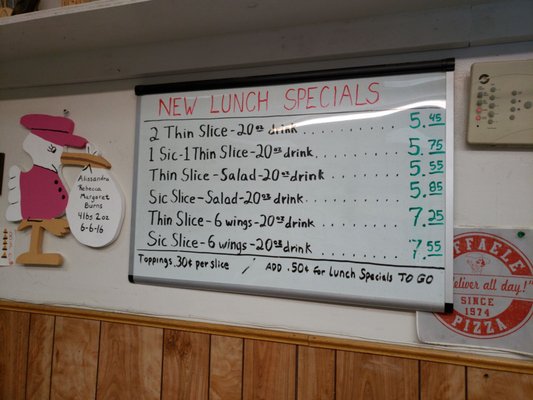 NEW LUNCH SPECIALS
2 Thin Slice-20oz drink.......... 5.45
1 Sic-1 Thin Slice-20oz drink.......... 5.75
Thin Slice-Salad-20oz drink.......... 5.55
Sic Slice-Salad-20oz drink.......... 5.85
Thin Slice-6 wings-20oz drink.......... 7.25
Sic Slice-6 wings-20oz drink.......... 7.55
Toppings .30¢ per slice / ADD .50¢ for Lunch Specials TO GO
Alissandra
Rebecca
Margaret
Burns
4lbs 2oz
6-6-16
FFAELE
eliver all day!"
SINCE
1974
PIZZA